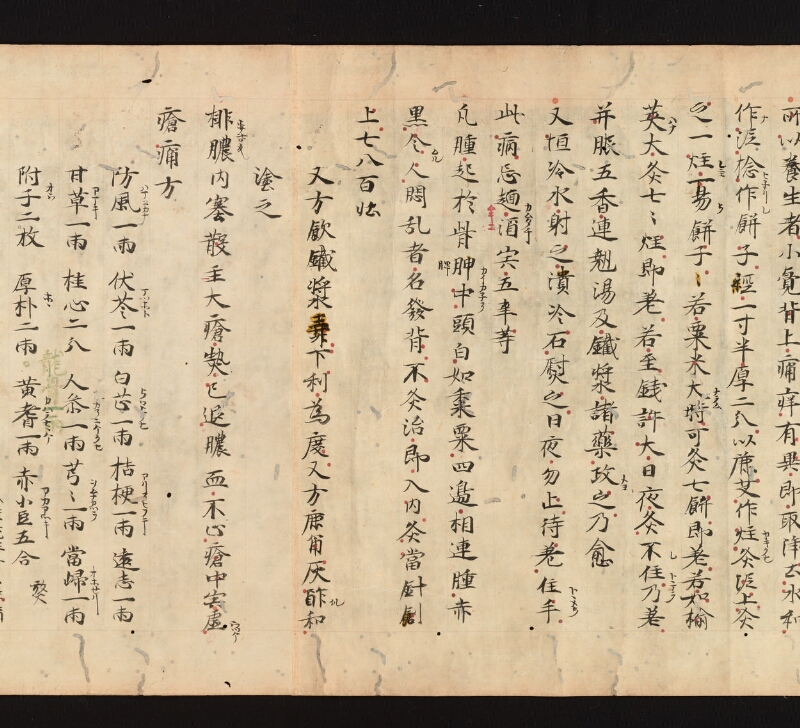 所以養生者小覺背上痛痒有異即取净土水和
作泥捻作餅子經一寸半厚二分以麁艾作炷灸泥上灸
之一炷一易餅子若粟米大時可灸七餅即差若如榆
莢大灸七々炷即差若至錢許大日夜灸不住乃差
并服五香連翹湯及鐵漿諸藥攻之乃愈
又恒冷水射之漬冷石熨之日夜勿止待差住手
此病忌麺酒宍五辛等
凡腫起於背胛中頭白如黍粟四邊相連腫赤
黒令人悶乱者名發背不灸治即入内灸當針
上七八百壮
又方飲鐵漿下利為度又方鹿角灰酢和
塗之
排膿内塞散主大瘡熱已退膿血不止瘡中宍虚
瘡痛方
防風一兩 伏苓一兩 白芷一兩 桔梗一兩 遠志一兩
甘草一兩 桂心二分 人参一兩 芎々一兩 當歸一兩
附子二枚 厚朴二兩 黄耆一兩 赤小豆五合